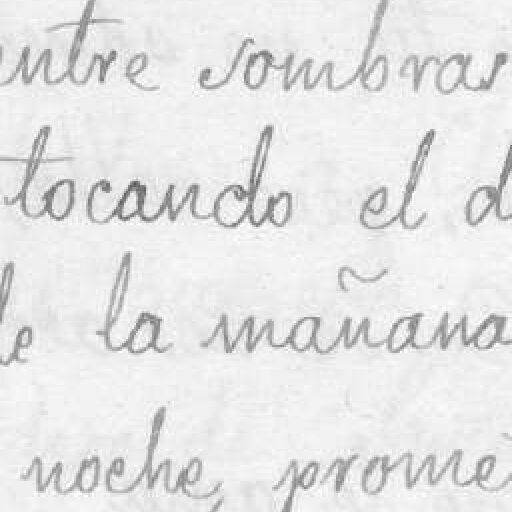 entre sombras
tocando el d
de la mañana
noche, prome